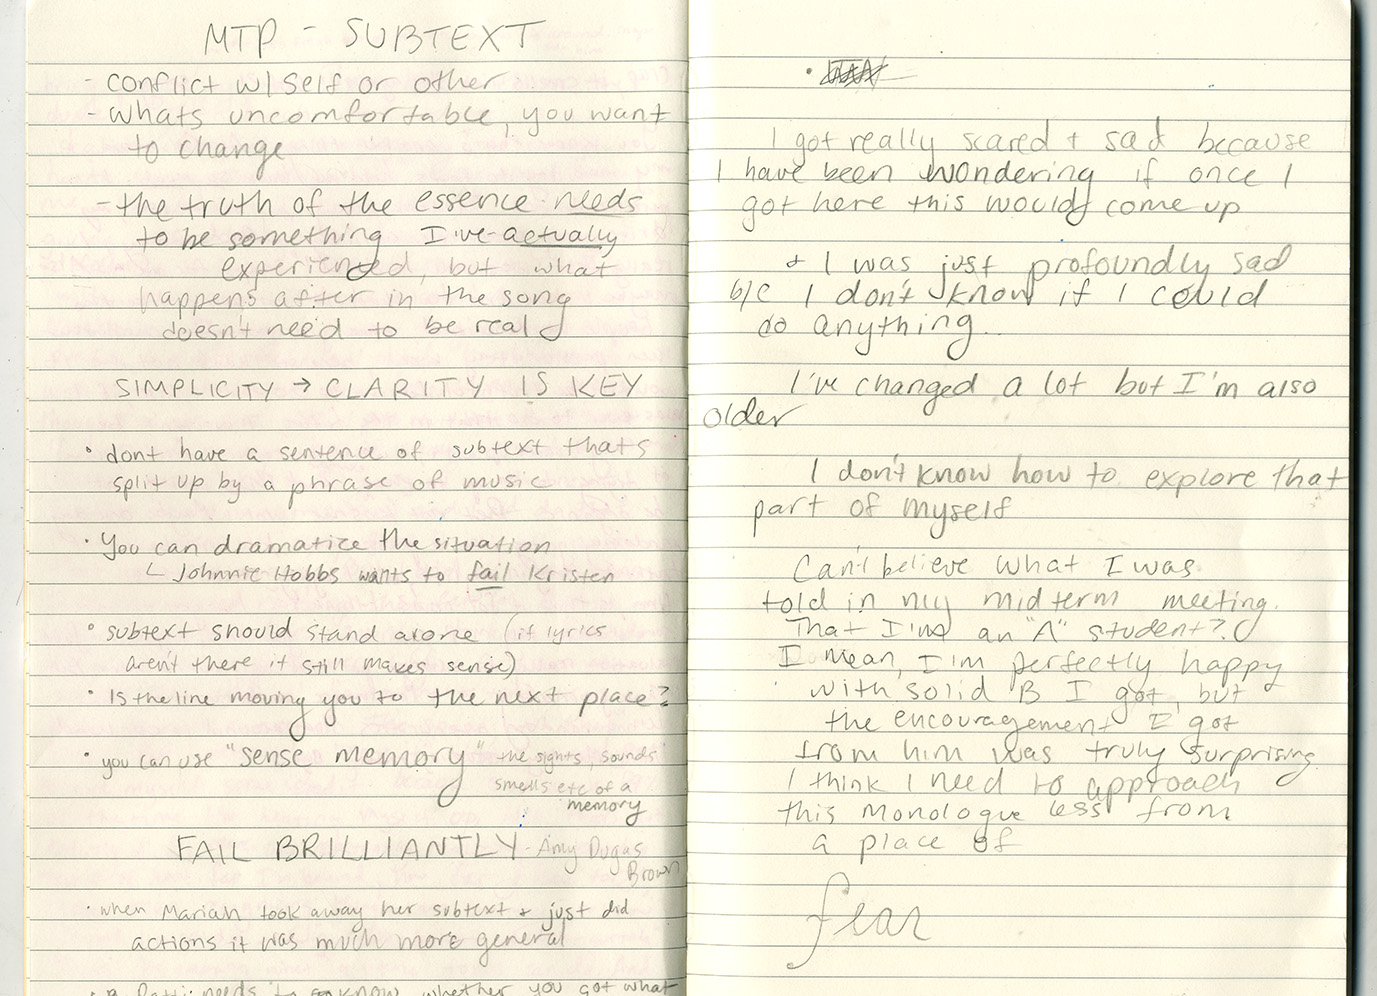 MTP - SUBTEXT
- conflict w/ self or other
- whats uncomfortable, you want
to change
- the truth of the essence needs
to be something I've actually
experienced, but what
happens after in the song
doesn't need to be real
SIMPLICITY → CLARITY IS KEY
• dont have a sentence of subtext thats
split up by a phrase of music
• You can dramatize the situation
└ Johnnie Hobbs wants to fail Kristen
• subtext should stand alone (if lyrics
aren't there it still makes sense)
• Is the line moving you to the next place?
• you can use "sense memory" the sights, sounds
smells etc of a
memory
FAIL BRILLIANTLY - Amy Dugas
Brown
• when Mariah took away her subtext + just did
actions it was much more general
• B. Patti: needs to know whether you got what
•
I got really scared + sad because
I have been wondering if once I
got here this would come up
+ I was just profoundly sad
b/c I don't know if I could
do anything..
I've changed a lot but I'm also
older
I don't know how to explore that
part of myself
Can't believe what I was
told in my midterm meeting.
That I'm an "A" student?
I mean, I'm perfectly happy
with solid B I got, but
the encouragement I got
from him was truly surprising
I think I need to approach
this monologue less from
a place of
fear